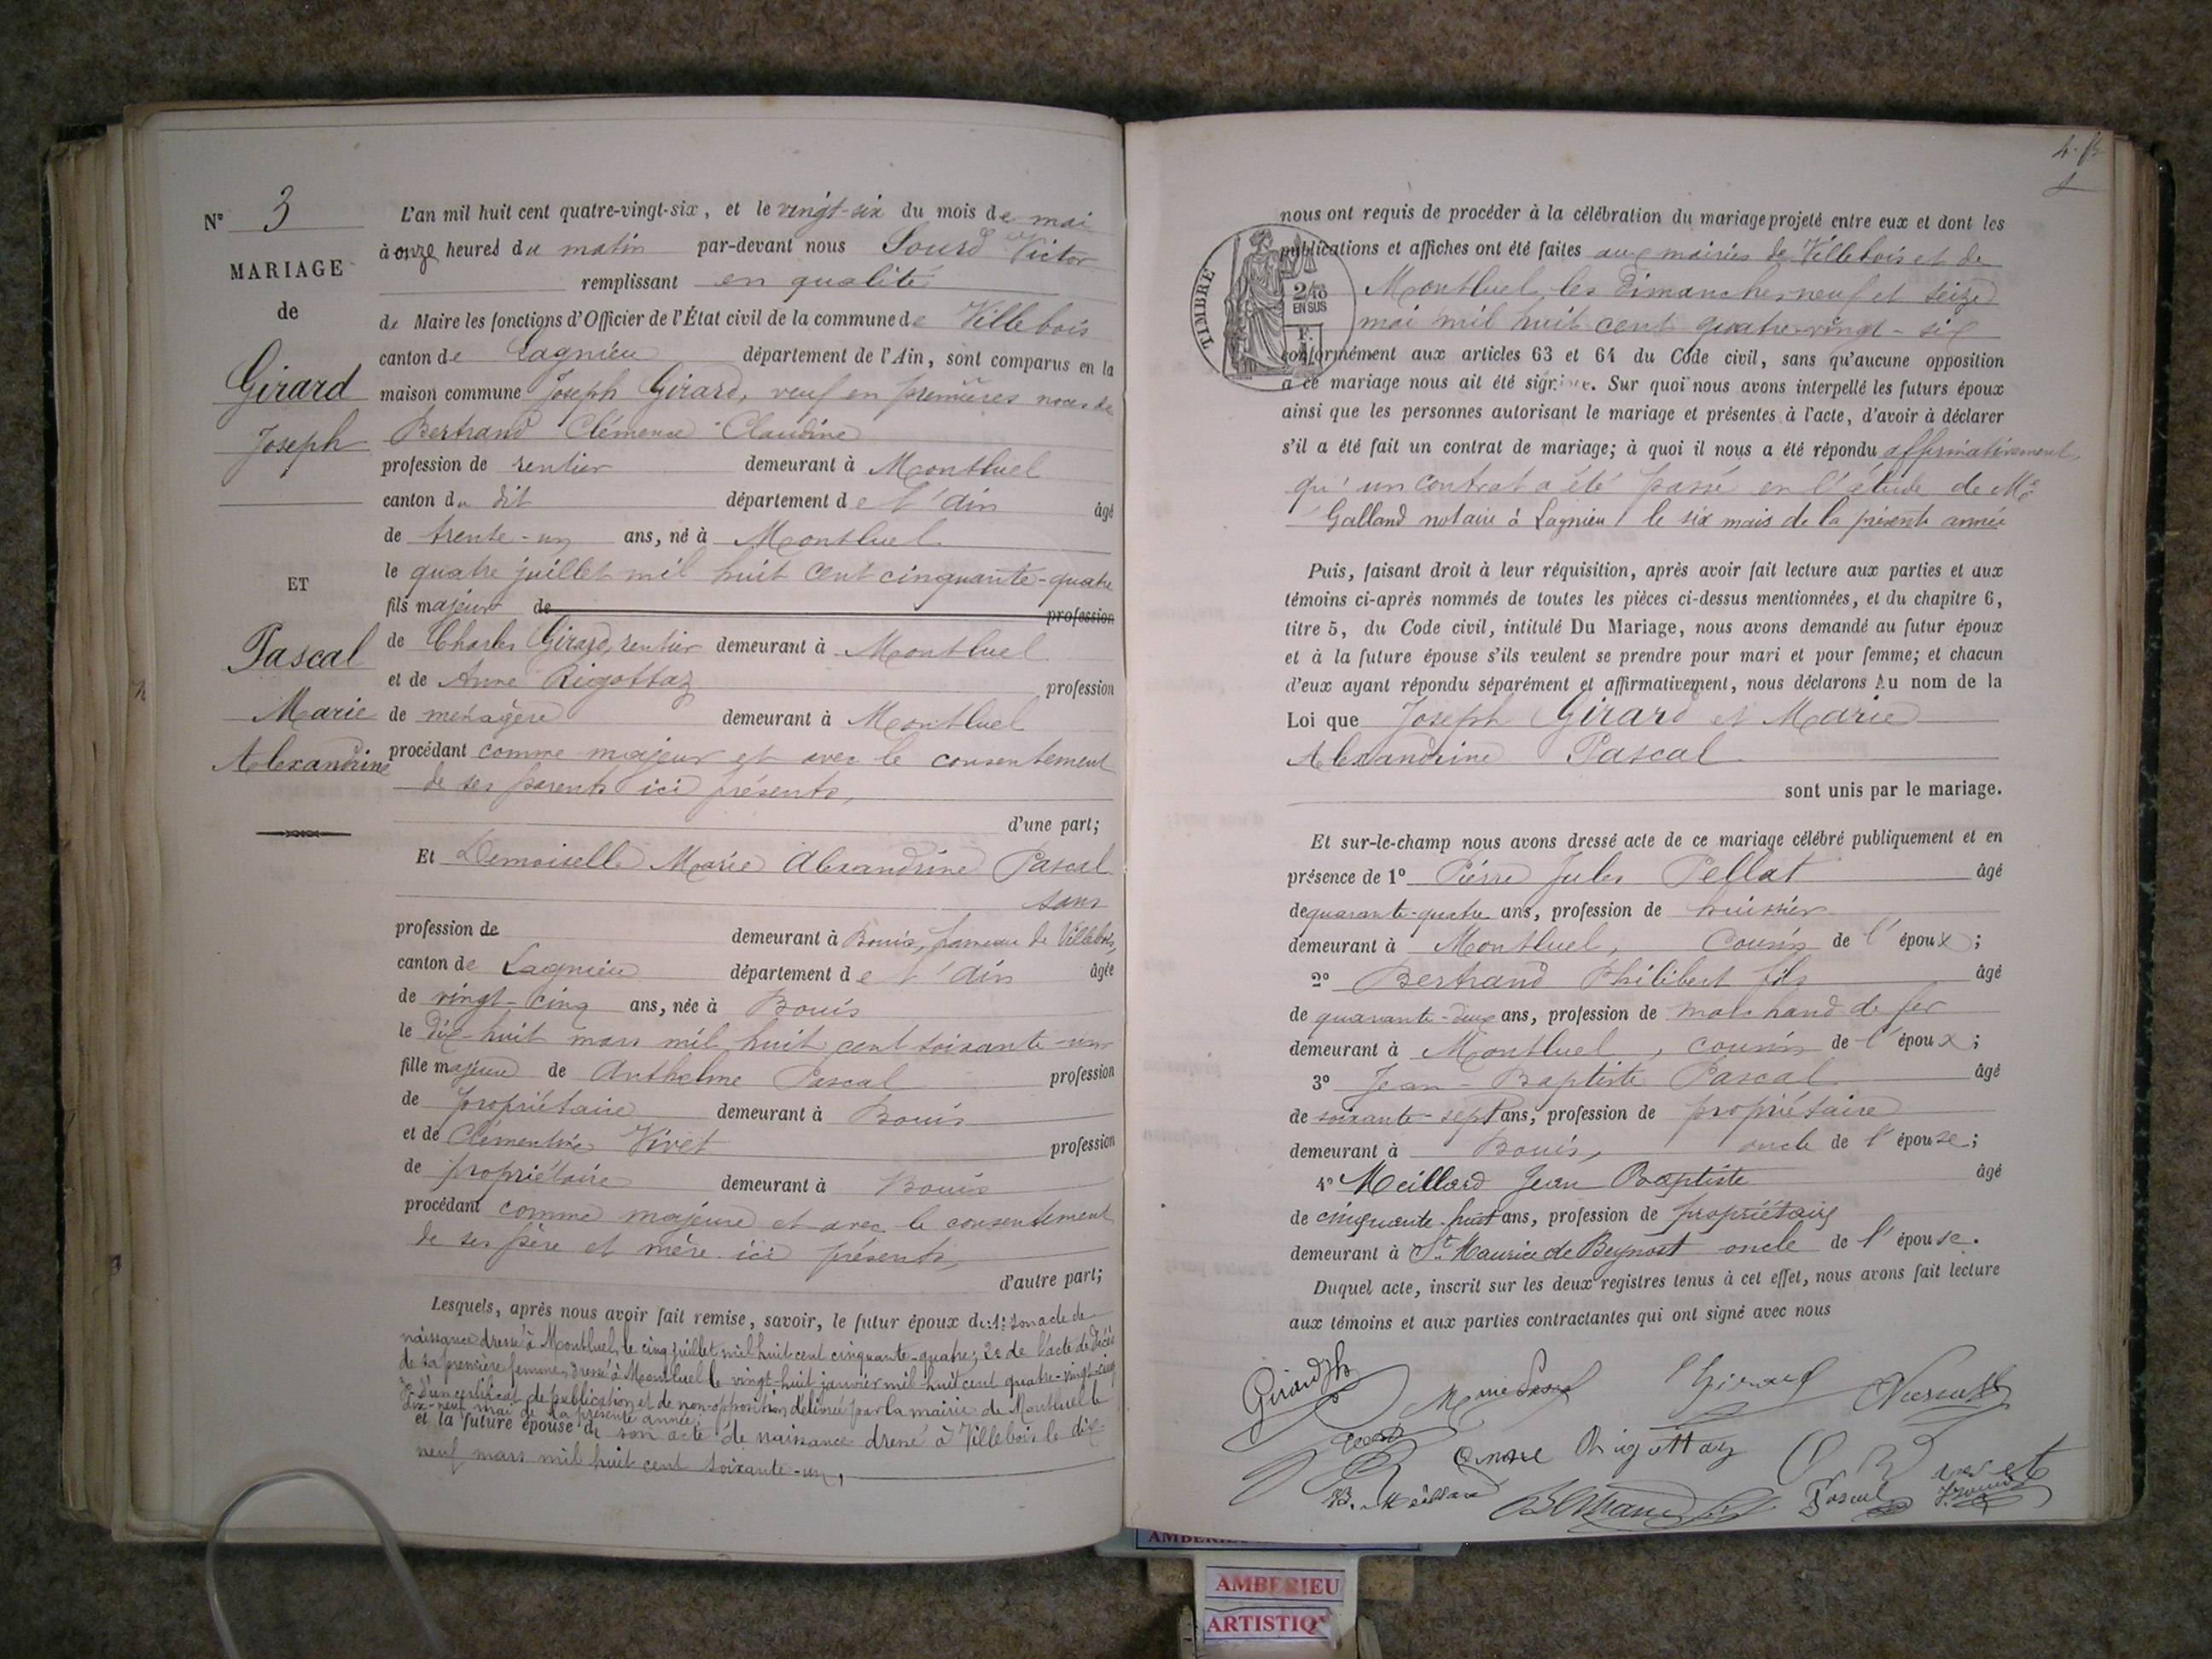 N° 3
MARIAGE
de
Girard
Joseph
ET
Pascal
Marie
Alexandrine
L'an mil huit cent quatre-vingt-six, et le vingt-six du mois de mai
à onze heures du matin par-devant nous Sourd Victor
remplissant en qualité
de Maire les fonctions d'Officier de l'État civil de la commune de Villebois
canton de Lagnieu département de l'Ain, sont comparus en la
maison commune Joseph Girard, veuf en premières noces de
Bertrand Clémence Claudine
profession de rentier demeurant à Montluel
canton du dit département de l'ain âgé
de trente-un ans, né à Montluel
le quatre juillet mil huit cent cinquante-quatre
fils majeur de profession
de Charles Girard, rentier demeurant à Montluel
et de Anne Rigottaz profession
de ménagère demeurant à Montluel
procédant comme majeur et avec le consentement
de ses parents ici présents,
d'une part;
Et Demoiselle Marie Alexandrine Pascal
sans
profession de demeurant à Bouis, hameau de Villebois,
canton de Lagnieu département de l'ain âgée
de vingt-cinq ans, née à Bouis
le dix-huit mars mil huit cent soixante-un
fille majeure de Anthelme Pascal profession
de propriétaire demeurant à Bouis
et de Clémentine Vivet profession
de propriétaire demeurant à Bouis
procédant comme majeure et avec le consentement
de ses père et mère ici présents,
d'autre part;
Lesquels, après nous avoir fait remise, savoir, le futur époux de: 1° son acte de
naissance dressé à Montluel, le cinq juillet mil huit cent cinquante-quatre; 2° de l'acte de décès
de sa première femme, dressé à Montluel le vingt-huit janvier mil-huit cent quatre-vingt-cinq
3° D'un certificat de publication et de non-opposition délivré par la mairie de Montluel le
dix-neuf mai de la présente année;
et la future épouse de son acte de naissance dressé à Villebois le dix-
neuf mars mil huit cent soixante-un,
4
nous ont requis de procéder à la célébration du mariage projeté entre eux et dont les
publications et affiches ont été faites aux mairies de Villebois et de
Montluel, les dimanches neuf et seize
mai mil huit cent quatre-vingt-six
TIMBRE
2/10
EN SUS
conformément aux articles 63 et 64 du Code civil, sans qu'aucune opposition
à ce mariage nous ait été signifiée. Sur quoi nous avons interpellé les futurs époux
ainsi que les personnes autorisant le mariage et présentes à l'acte, d'avoir à déclarer
s'il a été fait un contrat de mariage; à quoi il nous a été répondu affirmativement,
qu'un contrat a été passé en l'étude de Me
Galland notaire à Lagnieu le six mais de la présente année
Puis, faisant droit à leur réquisition, après avoir fait lecture aux parties et aux
témoins ci-après nommés de toutes les pièces ci-dessus mentionnées, et du chapitre 6,
titre 5, du Code civil, intitulé Du Mariage, nous avons demandé au futur époux
et à la future épouse s'ils veulent se prendre pour mari et pour femme; et chacun
d'eux ayant répondu séparément et affirmativement, nous déclarons Au nom de la
Loi que Joseph Girard et Marie
Alexandrine Pascal
sont unis par le mariage.
Et sur-le-champ nous avons dressé acte de ce mariage célébré publiquement et en
présence de 1° Pierre Jules Pellat âgé
de quarante-quatre ans, profession de huissier
demeurant à Montluel, cousin de l'époux;
2° Bertrand Philibert fils âgé
de quarante-deux ans, profession de marchand de fer
demeurant à Montluel, cousin de l'époux;
3° Jean-Baptiste Pascal âgé
de soixante-sept ans, profession de propriétaire
demeurant à Bouis, oncle de l'épouse;
4° Meillard Jean Baptiste âgé
de cinquante-huit ans, profession de propriétaire
demeurant à St. Maurice de Beynost oncle de l'épouse.
Duquel acte, inscrit sur les deux registres tenus à cet effet, nous avons fait lecture
aux témoins et aux parties contractantes qui ont signé avec nous
Girard Jh Marie Pascal Girard
Anne Rigottaz
Meillard Bertrand Pascal
AMBERIEU
ARTISTIQ